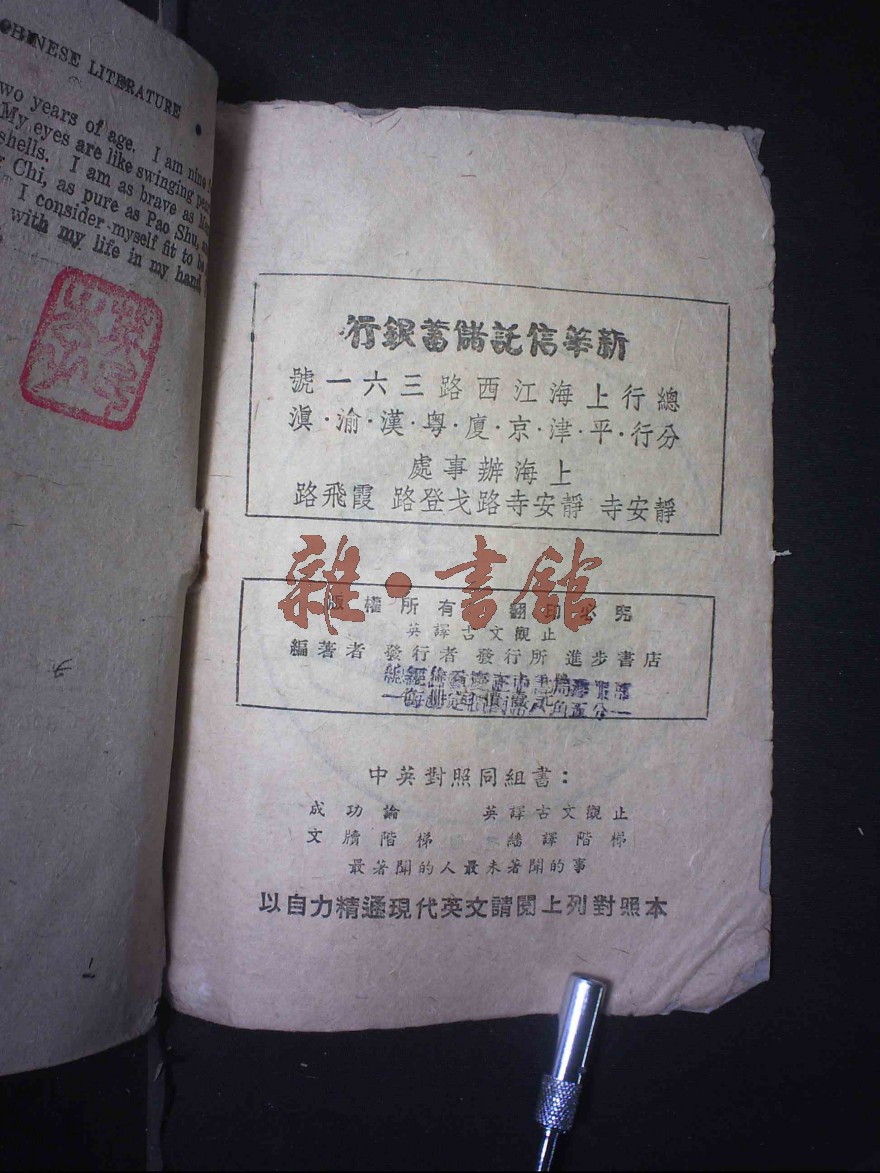 CHINESE LITERATURE
two years of age. I am nine
My eyes are like swinging
shells. I am as brave as
Chi, as pure as Pao Shu,
I consider myself fit to be
with my life in my hand
新華信託儲蓄銀行
總行上海江西路三六一號
分行·平·津·京·廈·粵·漢·渝·滇
上海辦事處
靜安寺 靜安寺路戈登路 霞飛路
雜·書館
版權所有 翻印必究
英譯古文觀止
編著者 發行者 發行所 進步書店
中英對照同組書：
成功論 英譯古文觀止
文牘階梯 繙譯階梯
最著聞的人最未著聞的事
以自力精通現代英文請閱上列對照本